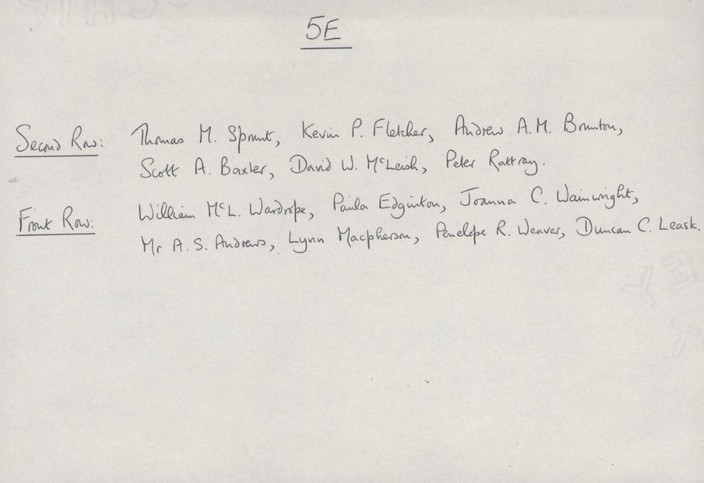 5E
Second Row: Thomas M. Sprunt, Kevin P. Fletcher, Andrew A.M. Brunton,
Scott A. Baxter, David W. McLeish, Peter Rattray.
Front Row: William McL. Wardrope, Paula Edginton, Joanna C. Wainwright,
Mr A.S. Andrews, Lynn Macpherson, Penelope R. Weaver, Duncan C. Leask.